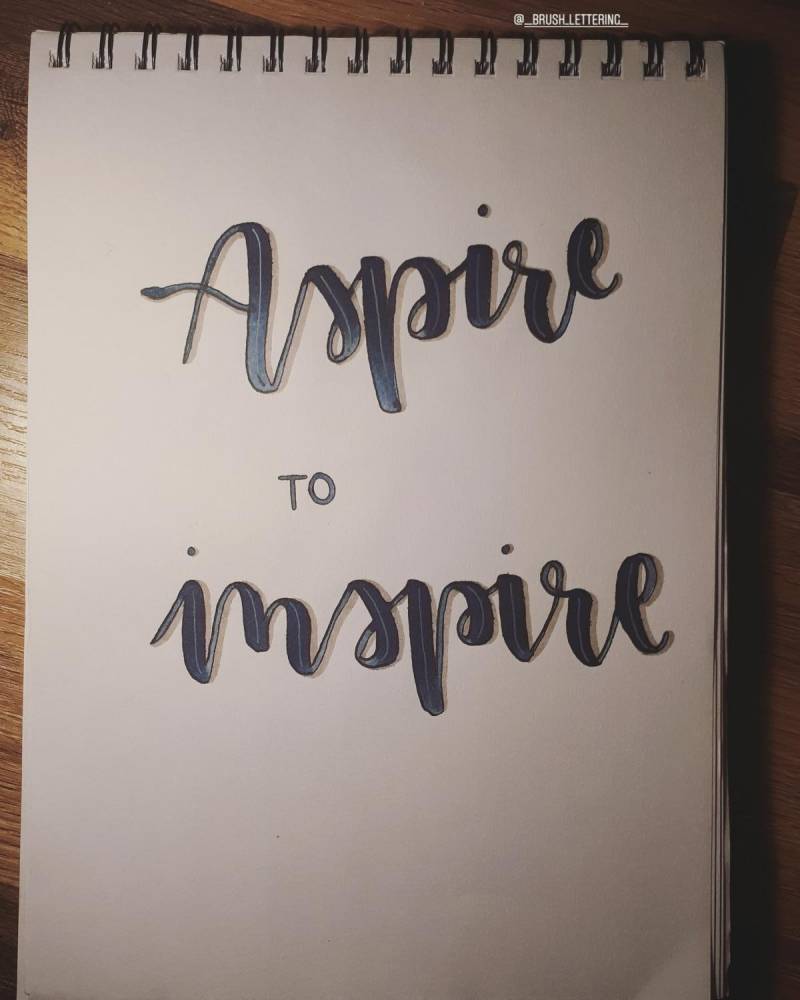 @__BRUSH_LETTERING__
Aspire
TO
inspire